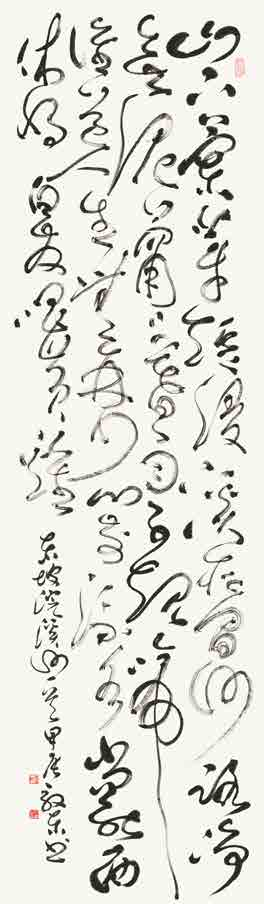 山下蘭芽短浸溪松間沙路淨
無泥瀟瀟暮雨子規啼
誰道人生無再少門前流水尚能西
休將白髮唱黃雞
東坡浣溪沙一首甲辰 東書